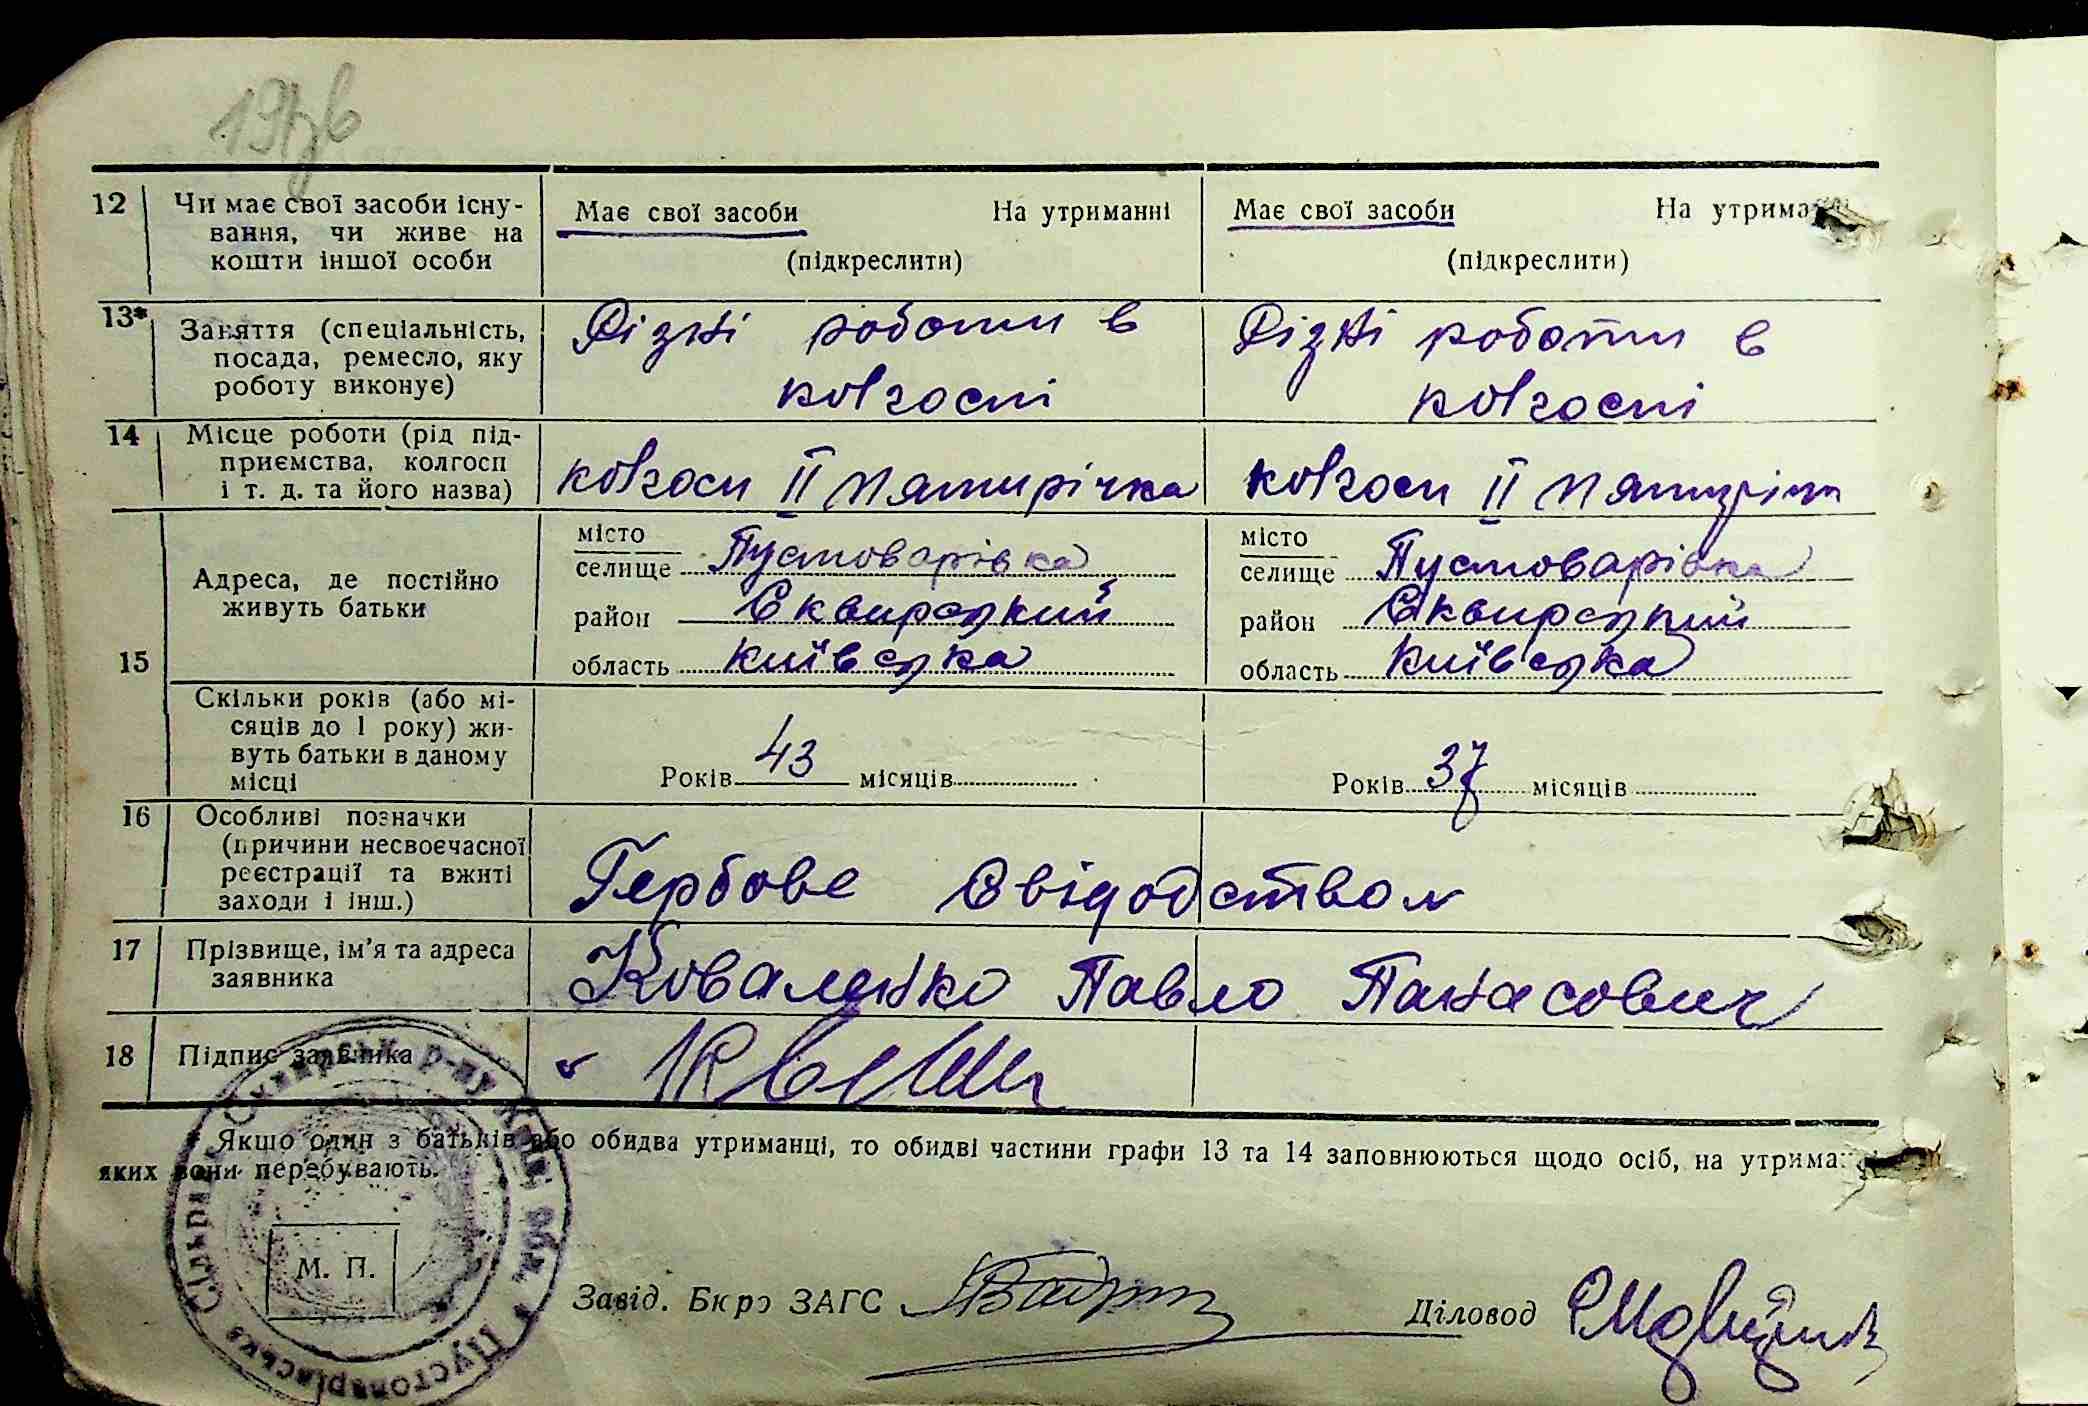 12 Чи має свої засоби існу- Має свої засоби На утриманні Має свої засоби На утрима
вання, чи живе на
кошти іншої особи (підкреслити) (підкреслити)
13* Заняття (спеціальність, Різні роботи в Різні роботи в
посада, ремесло, яку
роботу виконує) ковгоспі ковгоспі
14 Місце роботи (рід під-
приємства, колгосп
і т. д. та його назва) ковгосп ІІ пятирічка ковгосп ІІ
місто місто
Адреса, де постійно селище Пустоварівка селище Пустоварівка
живуть батьки район Сквирський район Сквирський
15 область Київська область Київська
Скільки років (або мі-
сяців до 1 року) жи-
вуть батьки в даному
місці Років 43 місяців Років 37 місяців
16 Особливі позначки
(причини несвоєчасної
реєстрації та вжиті
заходи і інш.) Гербове Свідодством
17 Прізвище, ім'я та адреса
заявника Коваленко Павло Панасович
18 Підпис заявника
* Якщо один з батьків або обидва утриманці, то обидві частини графи 13 та 14 заповнюються щодо осіб, на утрима
яких вони перебувають.
М. П.
Завід. Бюро ЗАГС Діловод
Пустоварівська Сільрада Сквирськ. р-ну Київ. обл.